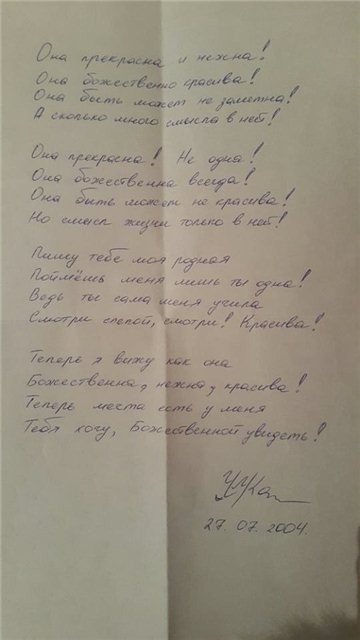 Она прекрасна и нежна!
Она божественно красива!
Она быть может не заметна!
А сколько много смысла в ней!
Она прекрасна! Не одна!
Она божественна всегда!
Она быть может не красива!
Но смысл жизни только в ней!
Пишу тебе моя родная
Поймёшь меня лишь ты одна!
Ведь ты сама меня учила
Смотри слепой, смотри! Красива!
Теперь я вижу как она
Божественна, нежна, красива!
Теперь места есть у меня
Тебя хочу, Божественной увидеть!
27. 07. 2004.